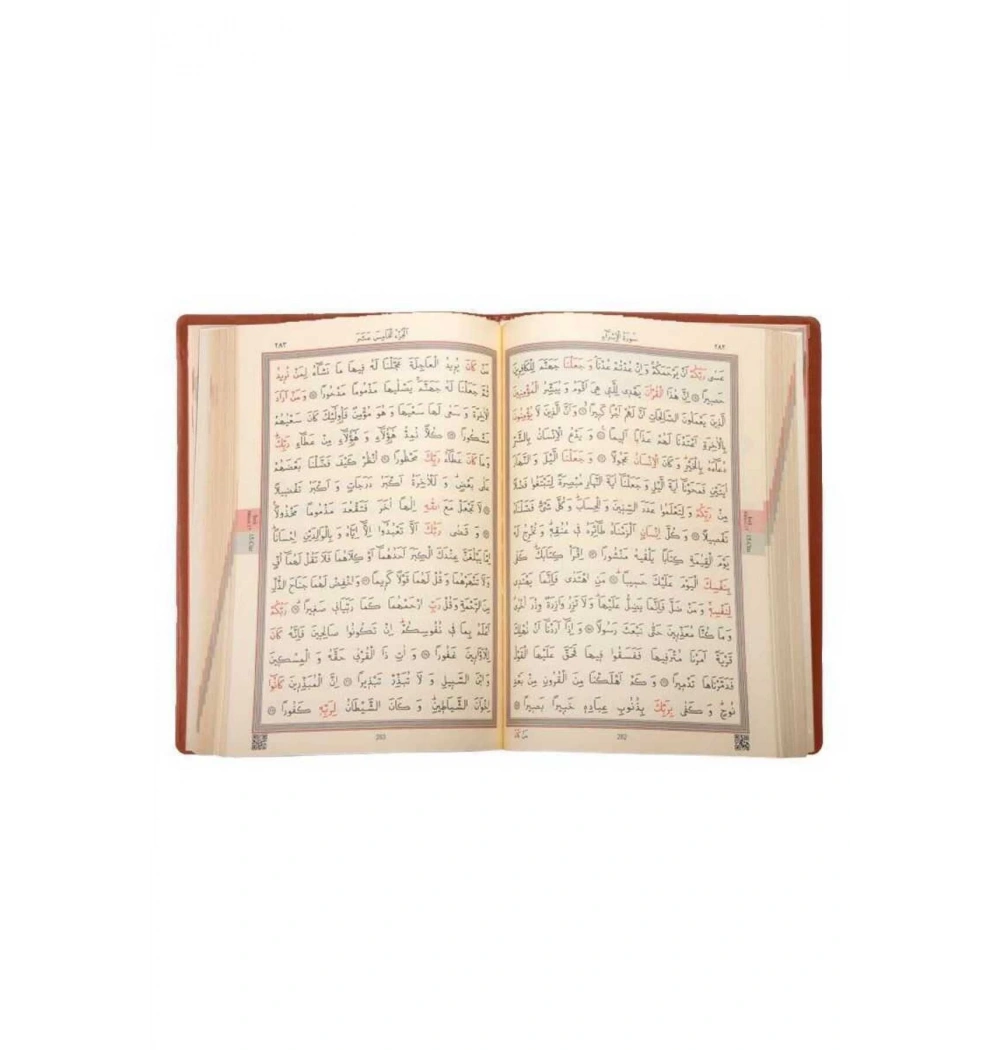 سورة الإسراء
٢٨٢
عَسٰى رَبُّكُمْ اَنْ يَرْحَمَكُمْ وَاِنْ عُدْتُمْ عُدْنَا وَجَعَلْنَا جَهَنَّمَ لِلْكَافِرِينَ
حَصِيرًا اِنَّ هٰذَا الْقُرْاٰنَ يَهْدِي لِلَّتِي هِيَ اَقْوَمُ وَيُبَشِّرُ الْمُؤْمِنِينَ
الَّذِينَ يَعْمَلُونَ الصَّالِحَاتِ اَنَّ لَهُمْ اَجْرًا كَبِيرًا وَاَنَّ الَّذِينَ لَا يُؤْمِنُونَ
بِالْاٰخِرَةِ اَعْتَدْنَا لَهُمْ عَذَابًا اَلِيمًا وَيَدْعُ الْاِنْسَانُ بِالشَّرِّ
دُعَاءَهُ بِالْخَيْرِ وَكَانَ الْاِنْسَانُ عَجُولًا وَجَعَلْنَا الَّيْلَ وَالنَّهَارَ
اٰيَتَيْنِ فَمَحَوْنَا اٰيَةَ الَّيْلِ وَجَعَلْنَا اٰيَةَ النَّهَارِ مُبْصِرَةً لِتَبْتَغُوا فَضْلًا
مِنْ رَبِّكُمْ وَلِتَعْلَمُوا عَدَدَ السِّنِينَ وَالْحِسَابَ وَكُلَّ شَيْءٍ فَصَّلْنَاهُ
تَفْصِيلًا وَكُلَّ اِنْسَانٍ اَلْزَمْنَاهُ طَائِرَهُ فِي عُنُقِهِ وَنُخْرِجُ لَهُ
يَوْمَ الْقِيٰمَةِ كِتَابًا يَلْقٰيهُ مَنْشُورًا اِقْرَأْ كِتَابَكَ كَفٰى
بِنَفْسِكَ الْيَوْمَ عَلَيْكَ حَسِيبًا مَنِ اهْتَدٰى فَاِنَّمَا يَهْتَدِي
لِنَفْسِهِ وَمَنْ ضَلَّ فَاِنَّمَا يَضِلُّ عَلَيْهَا وَلَا تَزِرُ وَازِرَةٌ وِزْرَ اُخْرٰى
وَمَا كُنَّا مُعَذِّبِينَ حَتّٰى نَبْعَثَ رَسُولًا وَاِذَا اَرَدْنَا اَنْ نُهْلِكَ
قَرْيَةً اَمَرْنَا مُتْرَفِيهَا فَفَسَقُوا فِيهَا فَحَقَّ عَلَيْهَا الْقَوْلُ
فَدَمَّرْنَاهَا تَدْمِيرًا وَكَمْ اَهْلَكْنَا مِنَ الْقُرُونِ مِنْ بَعْدِ
نُوحٍ وَكَفٰى بِرَبِّكَ بِذُنُوبِ عِبَادِهِ خَبِيرًا بَصِيرًا
مَنْ كَانَ
282
الجزء الخامس عشر
٢٨٣
مَنْ كَانَ يُرِيدُ الْعَاجِلَةَ عَجَّلْنَا لَهُ فِيهَا مَا نَشَاءُ لِمَنْ نُرِيدُ
ثُمَّ جَعَلْنَا لَهُ جَهَنَّمَ يَصْلٰيهَا مَذْمُومًا مَدْحُورًا وَمَنْ اَرَادَ
الْاٰخِرَةَ وَسَعٰى لَهَا سَعْيَهَا وَهُوَ مُؤْمِنٌ فَاُولٰئِكَ كَانَ سَعْيُهُمْ
مَشْكُورًا كُلًّا نُمِدُّ هٰؤُلَاءِ وَهٰؤُلَاءِ مِنْ عَطَاءِ رَبِّكَ
وَمَا كَانَ عَطَاءُ رَبِّكَ مَحْظُورًا اُنْظُرْ كَيْفَ فَضَّلْنَا بَعْضَهُمْ
عَلٰى بَعْضٍ وَلَلْاٰخِرَةُ اَكْبَرُ دَرَجَاتٍ وَاَكْبَرُ تَفْضِيلًا
لَا تَجْعَلْ مَعَ اللّٰهِ اِلٰهًا اٰخَرَ فَتَقْعُدَ مَذْمُومًا مَخْذُولًا
وَقَضٰى رَبُّكَ اَلَّا تَعْبُدُوا اِلَّا اِيَّاهُ وَبِالْوَالِدَيْنِ اِحْسَانًا
اِمَّا يَبْلُغَنَّ عِنْدَكَ الْكِبَرَ اَحَدُهُمَا اَوْ كِلَاهُمَا فَلَا تَقُلْ لَهُمَا اُفٍّ
وَلَا تَنْهَرْهُمَا وَقُلْ لَهُمَا قَوْلًا كَرِيمًا وَاخْفِضْ لَهُمَا جَنَاحَ الذُّلِّ
مِنَ الرَّحْمَةِ وَقُلْ رَبِّ ارْحَمْهُمَا كَمَا رَبَّيَانِي صَغِيرًا رَبُّكُمْ
اَعْلَمُ بِمَا فِي نُفُوسِكُمْ اِنْ تَكُونُوا صَالِحِينَ فَاِنَّهُ كَانَ
لِلْاَوَّابِينَ غَفُورًا وَاٰتِ ذَا الْقُرْبٰى حَقَّهُ وَالْمِسْكِينَ
وَابْنَ السَّبِيلِ وَلَا تُبَذِّرْ تَبْذِيرًا اِنَّ الْمُبَذِّرِينَ كَانُوا
اِخْوَانَ الشَّيَاطِينِ وَكَانَ الشَّيْطَانُ لِرَبِّهِ كَفُورًا
283